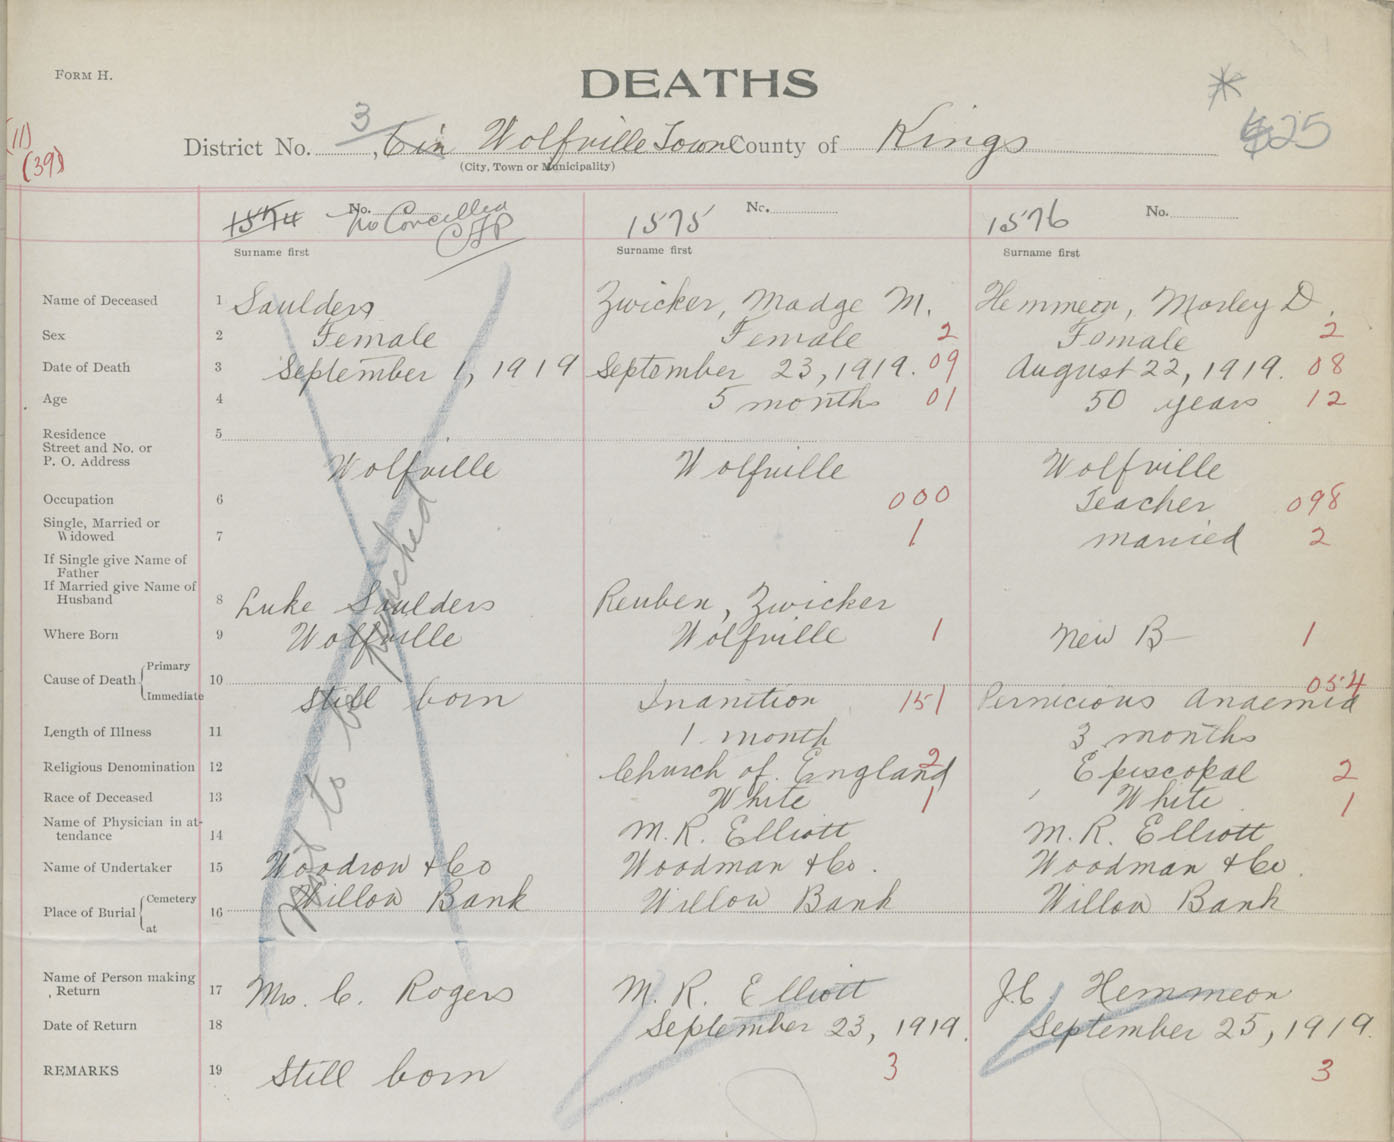 FORM H.
DEATHS
District No. 3, in Wolfville Town County of Kings
(City, Town or Municipality)
25
(11)
(39)
1574 No. No Cancelled
1575 No.
1576 No.
Surname first Surname first Surname first
Name of Deceased 1 Saulders Zwicker, Madge M. Hemmeon, Morley D.
Sex 2 Female Female 2 Female 2
Date of Death 3 September 1, 1919 September 23, 1919. 09 August 22, 1919. 08
Age 4 5 months 01 50 years 12
Residence 5
Street and No. or
P. O. Address Wolfville Wolfville Wolfville
Occupation 6 000 Teacher 098
Single, Married or
Widowed 7 1 married 2
If Single give Name of
Father
If Married give Name of
Husband 8 Luke Saulders Reuben, Zwicker
Where Born 9 Wolfville Wolfville 1 New B— 1
Cause of Death Primary 10 054
Immediate Still born Inanition 151 Pernicious Anaemia
Length of Illness 11 1 month 3 months
Religious Denomination 12 Church of England 2 Episcopal 2
Race of Deceased 13 White 1 White 1
Name of Physician in at-
tendance 14 M. R. Elliott M. R. Elliott
Name of Undertaker 15 Woodrow & Co Woodman & Co. Woodman & Co.
Place of Burial Cemetery 16 Willow Bank Willow Bank Willow Bank
at
Not to be punched
Name of Person making
Return 17 Mrs. C. Rogers M. R. Elliott J.C Hemmeon
Date of Return 18 September 23, 1919. September 25, 1919.
REMARKS 19 Still born 3 3